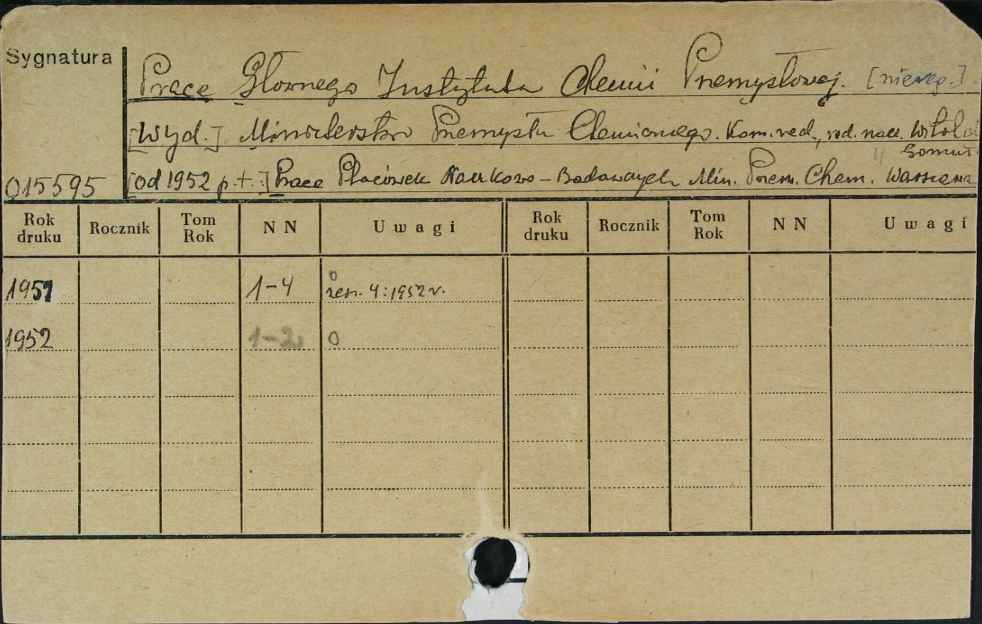 Sygnatura
Prace Głównego Instytutu Chemii Przemysłowej. [niereg.]
[Wyd.] Ministerstwo Przemysłu Chemicznego. Kom. red., red. nacz. Witold
015595 [Od 1952 p.t.:] Prace Placówek Naukowo-Badawczych Min. Przem. Chem. Warszawa
Rok druku Rocznik Tom Rok NN Uwagi Rok druku Rocznik Tom Rok NN Uwagi
1951 1-4 zesz. 4:1952 r.
1952 1-2 0